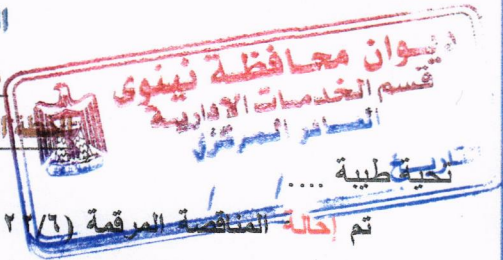 ديوان محافظة نينوى
قسم الخدمات الادارية
الصادر المركزي
تاريخ / /
تحية طيبة ....
تم إحالة المناقصة المرقمة (٢٢/٦